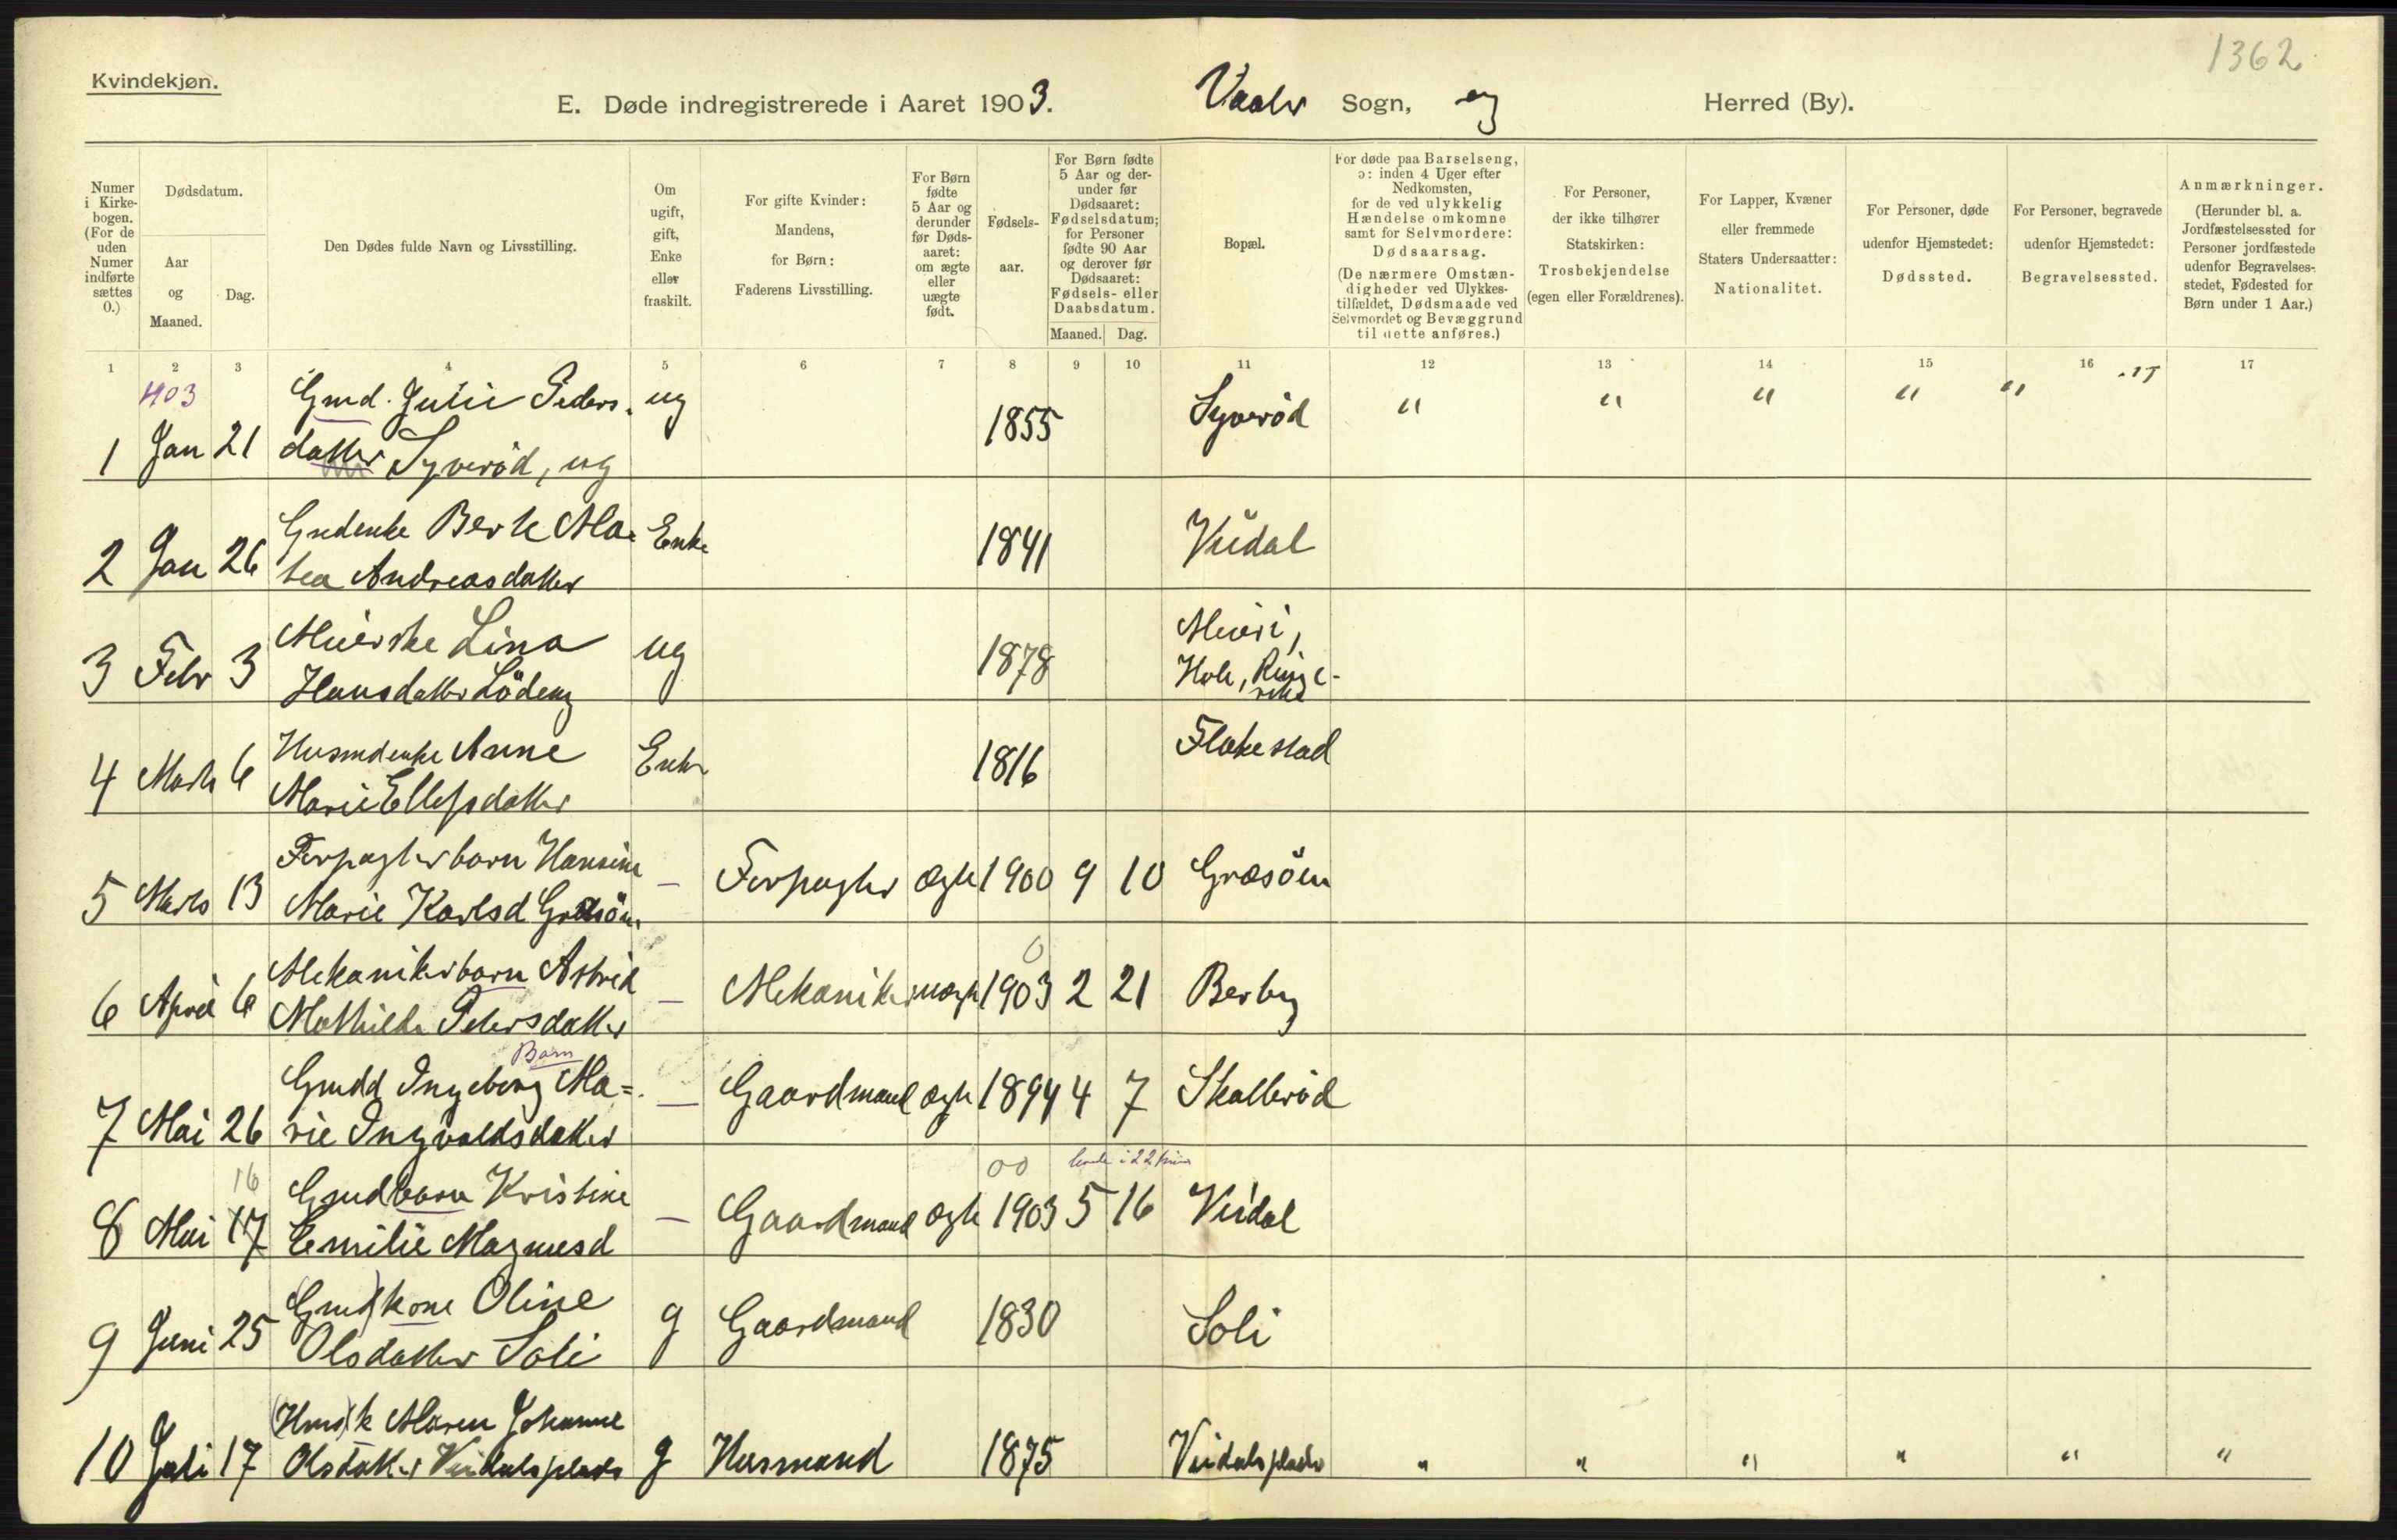 1362
Kvindekjøn.
E. Døde indregistrerede i Aaret 1903. Vaaler Sogn, og Herred (By).
Numer i Kirke-bogen. (For de uden Numer indførte sættes 0.)
Dødsdatum.
Aar og Maaned.
Dag.
Den Dødes fulde Navn og Livsstilling.
Om ugift, gift, Enke eller fraskilt.
For gifte Kvinder: Mandens, for Børn: Faderens Livsstilling.
For Børn fødte 5 Aar og derunder før Døds-aaret: om ægte eller uægte født.
Fødsels-aar.
For Børn fødte 5 Aar og der-under før Dødsaaret: Fødselsdatum; for Personer fødte 90 Aar og derover før Dødsaaret: Fødsels- eller Daabsdatum.
Maaned. Dag.
Bopæl.
For døde paa Barselseng, ɔ: inden 4 Uger efter Nedkomsten, for de ved ulykkelig Hændelse omkomne samt for Selvmordere: Dødsaarsag. (De nærmere Omstæn-digheder ved Ulykkes-tilfældet, Dødsmaade ved Selvmordet og Bevæggrund til dette anføres.)
For Personer, der ikke tilhører Statskirken: Trosbekjendelse (egen eller Forældrenes).
For Lapper, Kvæner eller fremmede Staters Undersaatter: Nationalitet.
For Personer, døde udenfor Hjemstedet: Dødssted.
For Personer, begravede udenfor Hjemstedet: Begravelsessted.
Anmærkninger. (Herunder bl. a. Jordfæstelsessted for Personer jordfæstede udenfor Begravelses-stedet, Fødested for Børn under 1 Aar.)
1 2 3 4 5 6 7 8 9 10 11 12 13 14 15 16 17
Gmd. Julie Peders- ug Syverød " " " " "
1 Jan 21 datter Syverød, ug 1855
Gmdenke Berte Ma- Enke 1841 Viidal
2 Jan 26 tea Andreasdatter
Meierske Lina ug 1878 Meieri,
3 Febr 3 Hansdatter Lödeng Hole, Ringe-
rike
Husmdenke Anne Enke 1816 Flakestad
4 Marts 6 Marie Ellefsdatter
Forpagterbarn Hansine — Forpagter ægte 1900 9 10 Græsöen
5 Marts 13 Marie Karlsd Græsöen
0
Mekanikerbarn Astrid — Mekaniker uægte 1903 2 21 Berby
6 April 6 Mathilde Petersdatter
Barn
Gmdd Ingeborg Ma= — Gaardmand ægte 1894 4 7 Skallerød
7 Mai 26 rie Ingvaldsdatter
16 00
Gmdbarn Kristine — Gaardmand ægte 1903 5 16 Viidal
8 Mai 17 Emilie Magnusd
(Gmd)kone Oline g Gaardmand 1830 Soli
9 Juni 25 Olsdatter Soli
(Hmd)k Maren Johanne
10 Juli 17 Olsdatter Viidalsplads g Husmand 1875 Viidalsplads " " " " " "